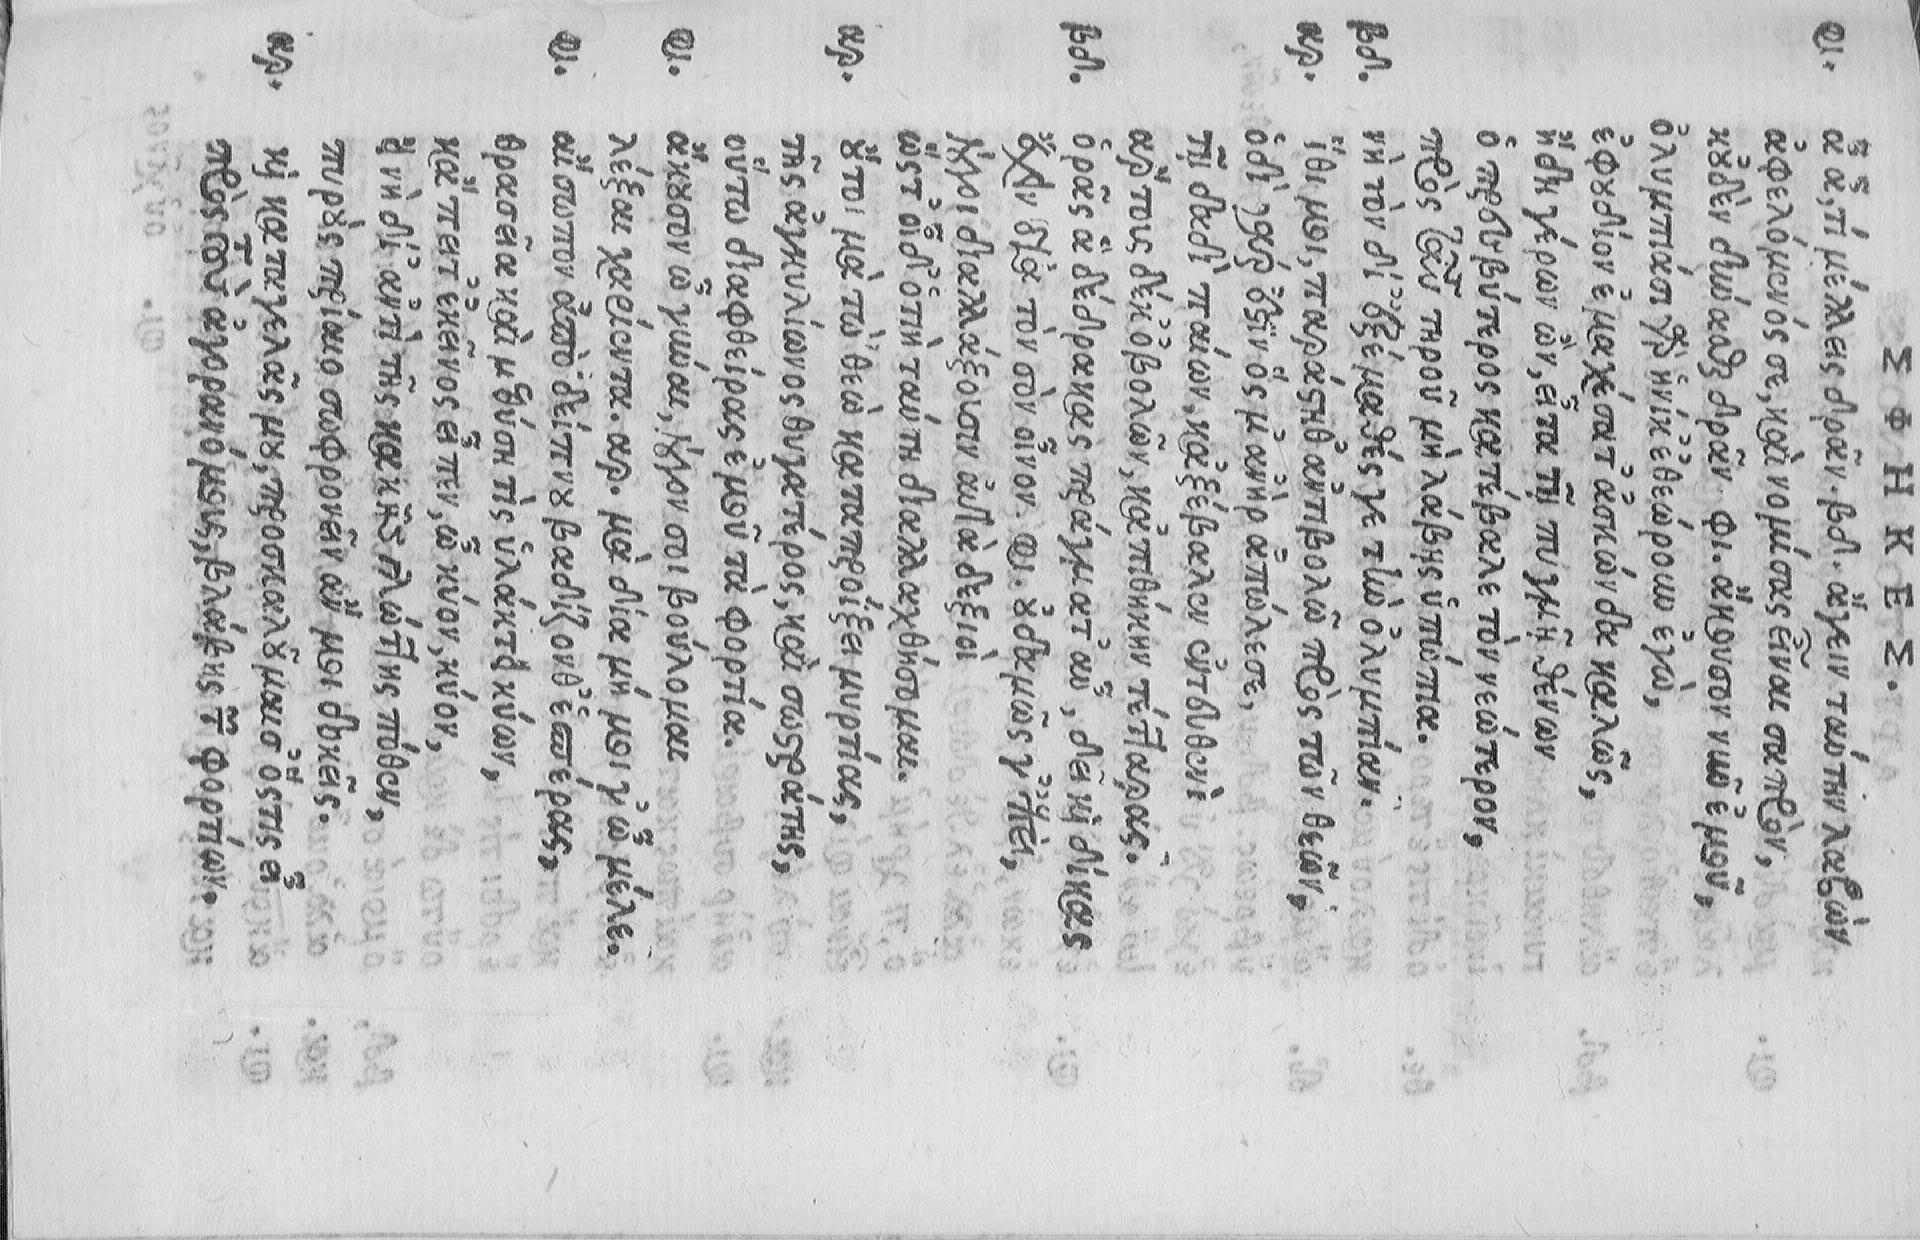 ΣΦΗΚΕΣ.
φι. ἆ ἆ, τί μέλλεις δρᾶν. βδ. ἄγειν ταύτην λαβὼν
ἀφελόμενός σε, καὶ νομίσας εἶναι σαπρόν,
κοὐδὲν δύνασθαι δρᾶν. φι. ἄκουσον νῦν ἐμοῦ,
ὀλυμπίασι γὰρ ἡνίκ' ἐθεώρουν ἐγὼ,
ἐφουδίον ἐμαχέσατ' ἀσκώνδα καλῶς,
ἤδη γέρων ὢν, εἶτα τῇ πυγμῇ θένων
ὁ πρεσβύτερος κατέβαλε τὸν νεώτερον,
πρὸς ταῦτα τηροῦ μὴ λάβῃς ὑπώπια.
βδ. νὴ τὸν δί' ἐξέμαθές γε τὴν ὀλυμπίαν.
αρ. ἴθι μοι, παράστηθ' ἀντιβολῶ πρὸς τῶν θεῶν,
ὁδὶ γάρ ἐστιν ὅς μ' ἀνὴρ ἀπώλεσε,
τῇ δαδὶ παίων, κἀξέβαλεν αὐτευθενὶ
ἄρτους δέκ' ὀβολῶν, κἀπιθήκην τέτταρας.
βδ. ὁρᾷς ἃ δέδρακας πράγματ' αὖ, δεῖ καὶ δίκας
ἔχειν διὰ τὸν σὸν οἶνον. φι. οὐδαμῶς γ' ἐπεὶ,
λόγοι διαλλάξουσιν αὐτὰ δεξιοὶ
ὥστ' οἶδ' ὁτιὴ ταύτῃ διαλλαχθήσομαι.
αρ. οὔ τοι μὰ τὼ θεὼ καταπροίξει μυρτίας,
τῆς ἀγκυλίωνος θυγατέρος, καὶ σωστράτης,
οὕτω διαφθείρας ἐμοῦ τὰ φορτία.
φι. ἄκουσον ὦ γύναι, λόγον σοι βούλομαι
λέξαι χαρίεντα. αρ. μὰ δία μή μοι γ' ὦ μέλεε.
φι. αἴσωπον ἀπὸ δείπνου βαδίζονθ' ἑσπέρας,
θρασεῖα καὶ μεθύση τὶς ὑλάκτει κύων,
κἄπειτ' ἐκεῖνος εἶπεν, ὦ κύον, κύον,
εἰ νὴ δί' ἀντὶ τῆς κακῆς γλώττης πόθεν,
πυροὺς πρίαιο σωφρονεῖν ἄν μοι δοκεῖς.
αρ. καὶ καταγελᾷς μου, προσκαλοῦμαι σ' ὅστις εἶ
πρὸς τοὺς ἀγορανόμους, βλάβης τῶν φορτίων.